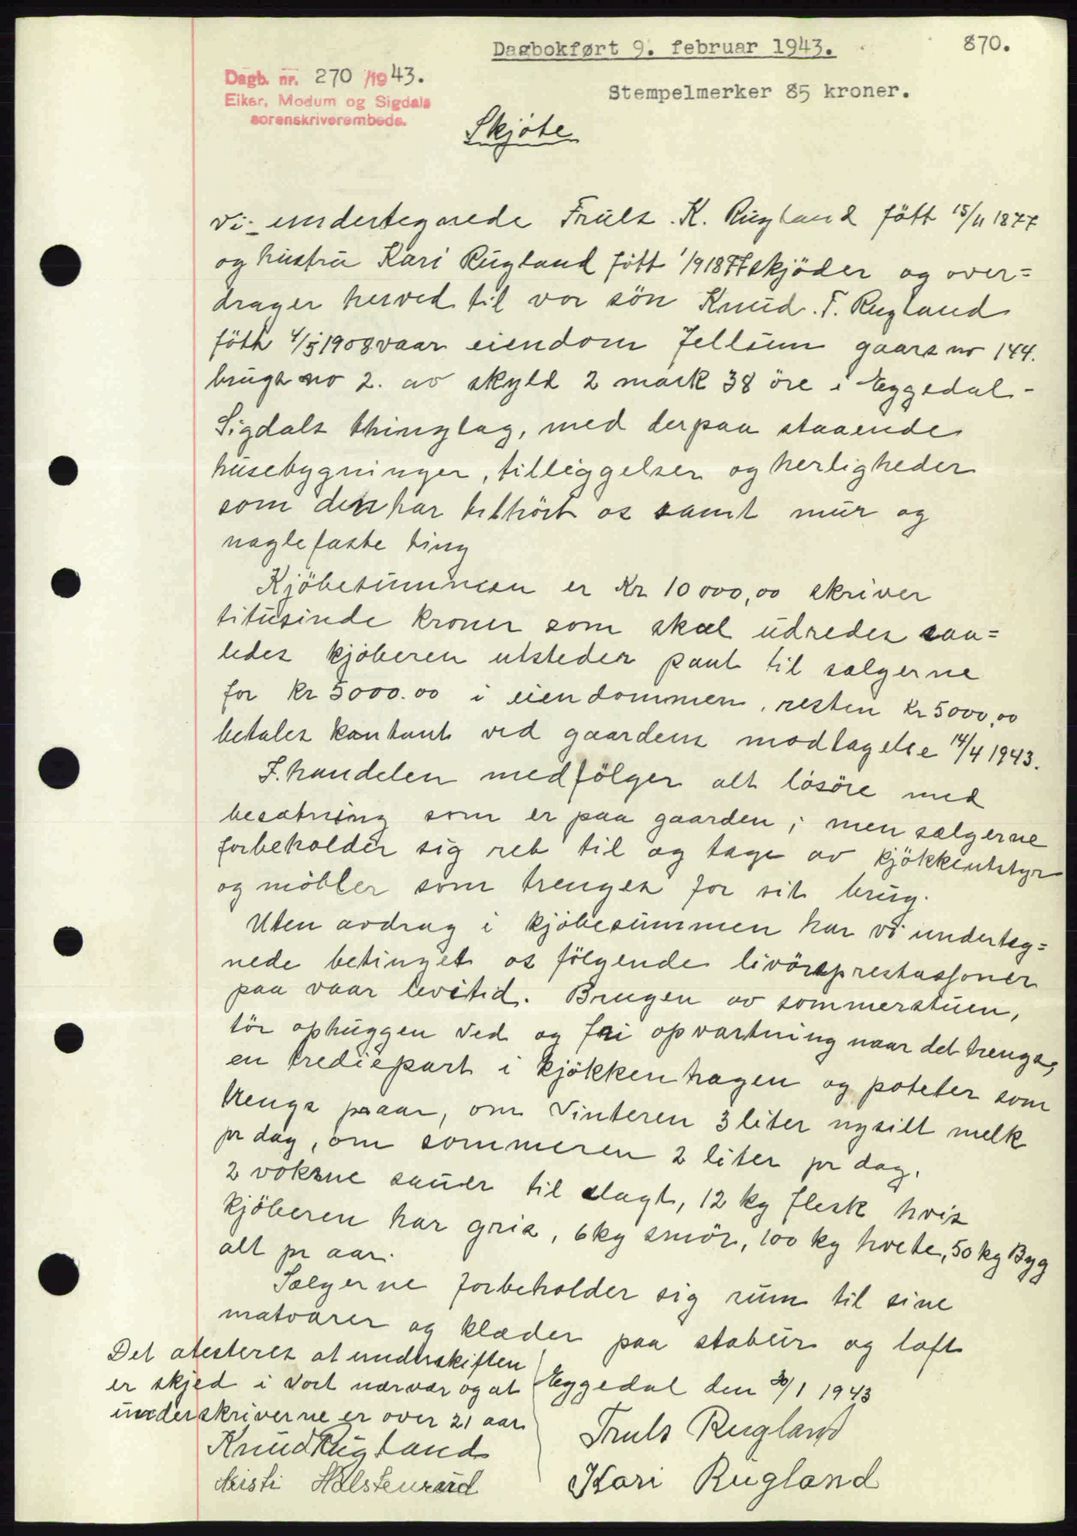 Dagbokført 9. februar 1943.
870.
Dagb. nr. 270 /1943.
Eiker, Modum og Sigdals
sorenskriverembede.
Stempelmerker 85 kroner.
Skjöte
Vi undertegnede Truls. K. Rugland fött 15/11 1877
og hustru Kari Rugland fött 1/9 1877 skjöder og over=
drager herved til vor sön Knud. T. Rugland
fött 4/5 1908 vaar eiendom Jellum gaars no 144.
bruga no 2. av skyld 2 mark 38 öre i Eggedal -
Sigdals thinglag, med derpaa staaende
husebygninger, tilliggelser og herligheder
som den har tilhört os samt mur og
naglefaste ting
Kjöbesummen er Kr 10 000,00 skriver
titusinde kroner som skal udredes saa=
ledes kjöberen utsteder pant til sælgerne
for Kr 5000.00 i eiendommen, resten Kr 5000,00
betales kontant ved gaardens modtagelse 14/4 1943.
I handelen medfölger alt lösöre med
besætning som er paa gaarden; men sælgerne
forbeholder sig ret til og tage av kjökkenutstyr
og möbler som trenges for sit brug.
Uten avdrag i kjöbesummen har vi underteg=
nede betinget os fölgende livörsprestasjoner
paa vaar levetid. Brugen av sommerstuen,
tör ophuggen ved og fri opvartning naar det trengs,
en trediepart i kjökkenhagen og poteter som
trengs paar, om Vinteren 3 liter nysilt melk
pr dag, om sommeren 2 liter pr dag.
2 voksne sauer til slagt, 12 kg flesk hvis
kjöberen har gris, 6 kg smör, 100 kg hvete, 50 kg Byg
alt pr aar.
Sælgerne forbeholder sig rum til sine
matvarer og klæder paa stabur og loft
Det atesteres at underskiften
er skjed i vort nærvær og at
underskriverne er over 21 aar
Knud Rugland
Kristi Halstenrud
Eggedal den 30/1 1943
Truls Rugland
Kari Rugland